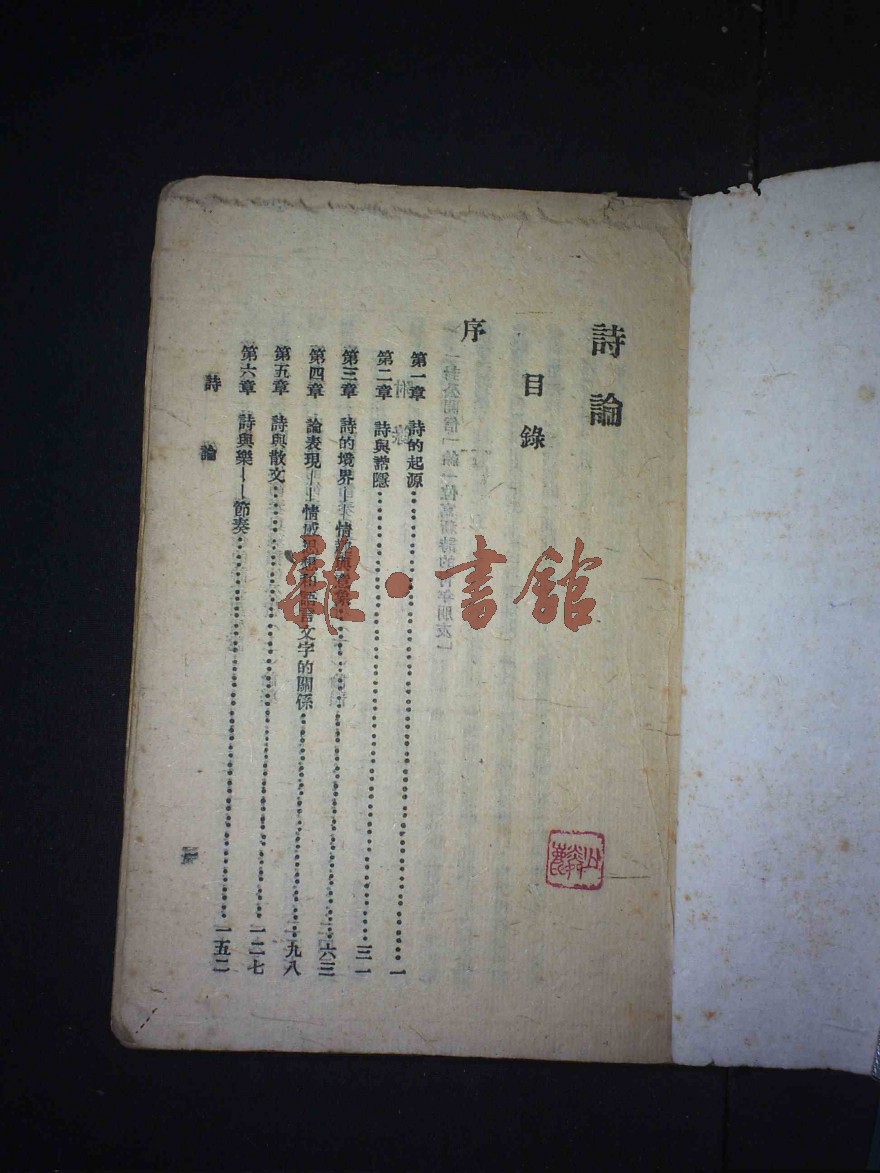 詩論
目錄
序
第一章 詩的起源……一
第二章 詩與諧隱……三一
第三章 詩的境界——情趣與意象……六三
第四章 論表現——情感思想和語言文字的關係……九八
第五章 詩與散文……一二七
第六章 詩與樂——節奏……一五二
詩 論
雜·書館